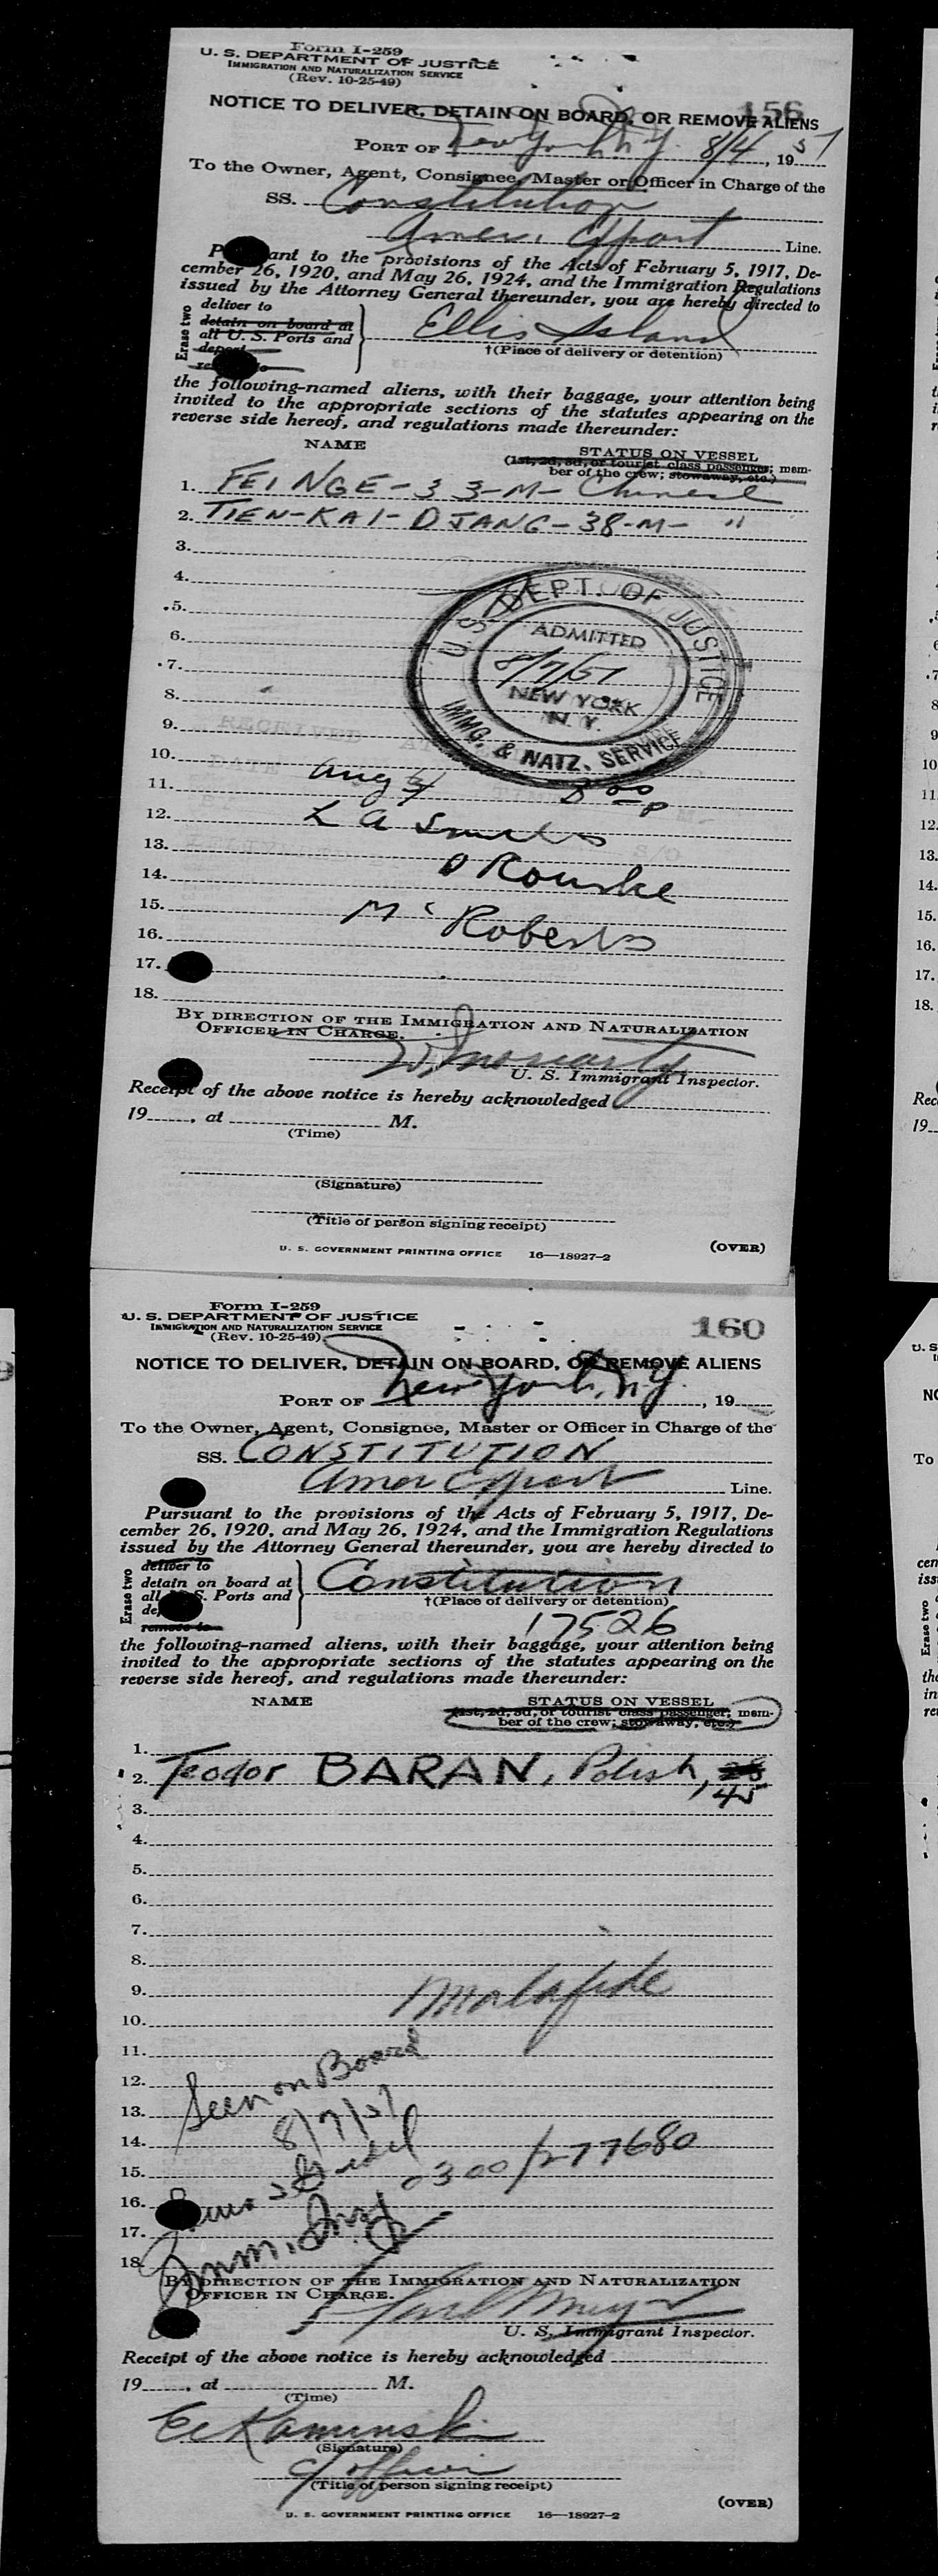 Form I-259
U. S. DEPARTMENT OF JUSTICE
IMMIGRATION AND NATURALIZATION SERVICE
(Rev. 10-25-49)
156
NOTICE TO DELIVER, DETAIN ON BOARD, OR REMOVE ALIENS
PORT OF New York N.Y. 8/4, 1951
To the Owner, Agent, Consignee, Master or Officer in Charge of the
SS. Constitution
Amer. Export Line.
P ant to the provisions of the Acts of February 5, 1917, De-
cember 26, 1920, and May 26, 1924, and the Immigration Regulations
issued by the Attorney General thereunder, you are hereby directed to
Erase two
deliver to
detain on board at
all U. S. Ports and
deport
Ellis Island
†(Place of delivery or detention)
the following-named aliens, with their baggage, your attention being
invited to the appropriate sections of the statutes appearing on the
reverse side hereof, and regulations made thereunder:
NAME STATUS ON VESSEL
(1st, 2d, 3d, or tourist class passenger; mem-
ber of the crew; stowaway, etc.)
1. FEI NGE - 33 - M - Chinese
2. TIEN-KAI-DJANG-38-M- "
3.
4.
5.
6.
7.
8.
9.
10.
11.
12.
13.
14.
15.
16.
17.
18.
U. S. DEPT. OF JUSTICE
ADMITTED
8/7/51
NEW YORK
N. Y.
IMMG. & NATZ. SERVICE
RECEIVED AT
DATE
Aug 8 00 P
L A
O Rourke
Mc Roberts
BY DIRECTION OF THE IMMIGRATION AND NATURALIZATION
OFFICER IN CHARGE.
Moriarty
U. S. Immigrant Inspector.
Receipt of the above notice is hereby acknowledged
19 , at M.
(Time)
(Signature)
(Title of person signing receipt)
U. S. GOVERNMENT PRINTING OFFICE 16—18927-2
(OVER)
Form I-259
U. S. DEPARTMENT OF JUSTICE
IMMIGRATION AND NATURALIZATION SERVICE
(Rev. 10-25-49)
160
NOTICE TO DELIVER, DETAIN ON BOARD, OR REMOVE ALIENS
PORT OF New York, N.Y. , 19
To the Owner, Agent, Consignee, Master or Officer in Charge of the
SS. CONSTITUTION
Amer Export Line.
Pursuant to the provisions of the Acts of February 5, 1917, De-
cember 26, 1920, and May 26, 1924, and the Immigration Regulations
issued by the Attorney General thereunder, you are hereby directed to
Erase two
deliver to
detain on board at
all S. Ports and
de
remove to
Constitution
†(Place of delivery or detention)
17526
the following-named aliens, with their baggage, your attention being
invited to the appropriate sections of the statutes appearing on the
reverse side hereof, and regulations made thereunder:
NAME STATUS ON VESSEL
(1st, 2d, 3d, or tourist class passenger; mem-
ber of the crew; stowaway, etc.)
1.
2. Teodor BARAN, Polish, 45
3.
4.
5.
6.
7.
8.
9. Malafide
10.
11.
12. Seen on Board
13. 8/7/51
14.
15. 0300/277680
16.
17. Imm. Insp
18.
BY DIRECTION OF THE IMMIGRATION AND NATURALIZATION
OFFICER IN CHARGE.
U. S. Immigrant Inspector.
Receipt of the above notice is hereby acknowledged
19 , at M.
(Time)
Kaminski
(Signature)
officer
(Title of person signing receipt)
U. S. GOVERNMENT PRINTING OFFICE 16—18927-2
(OVER)